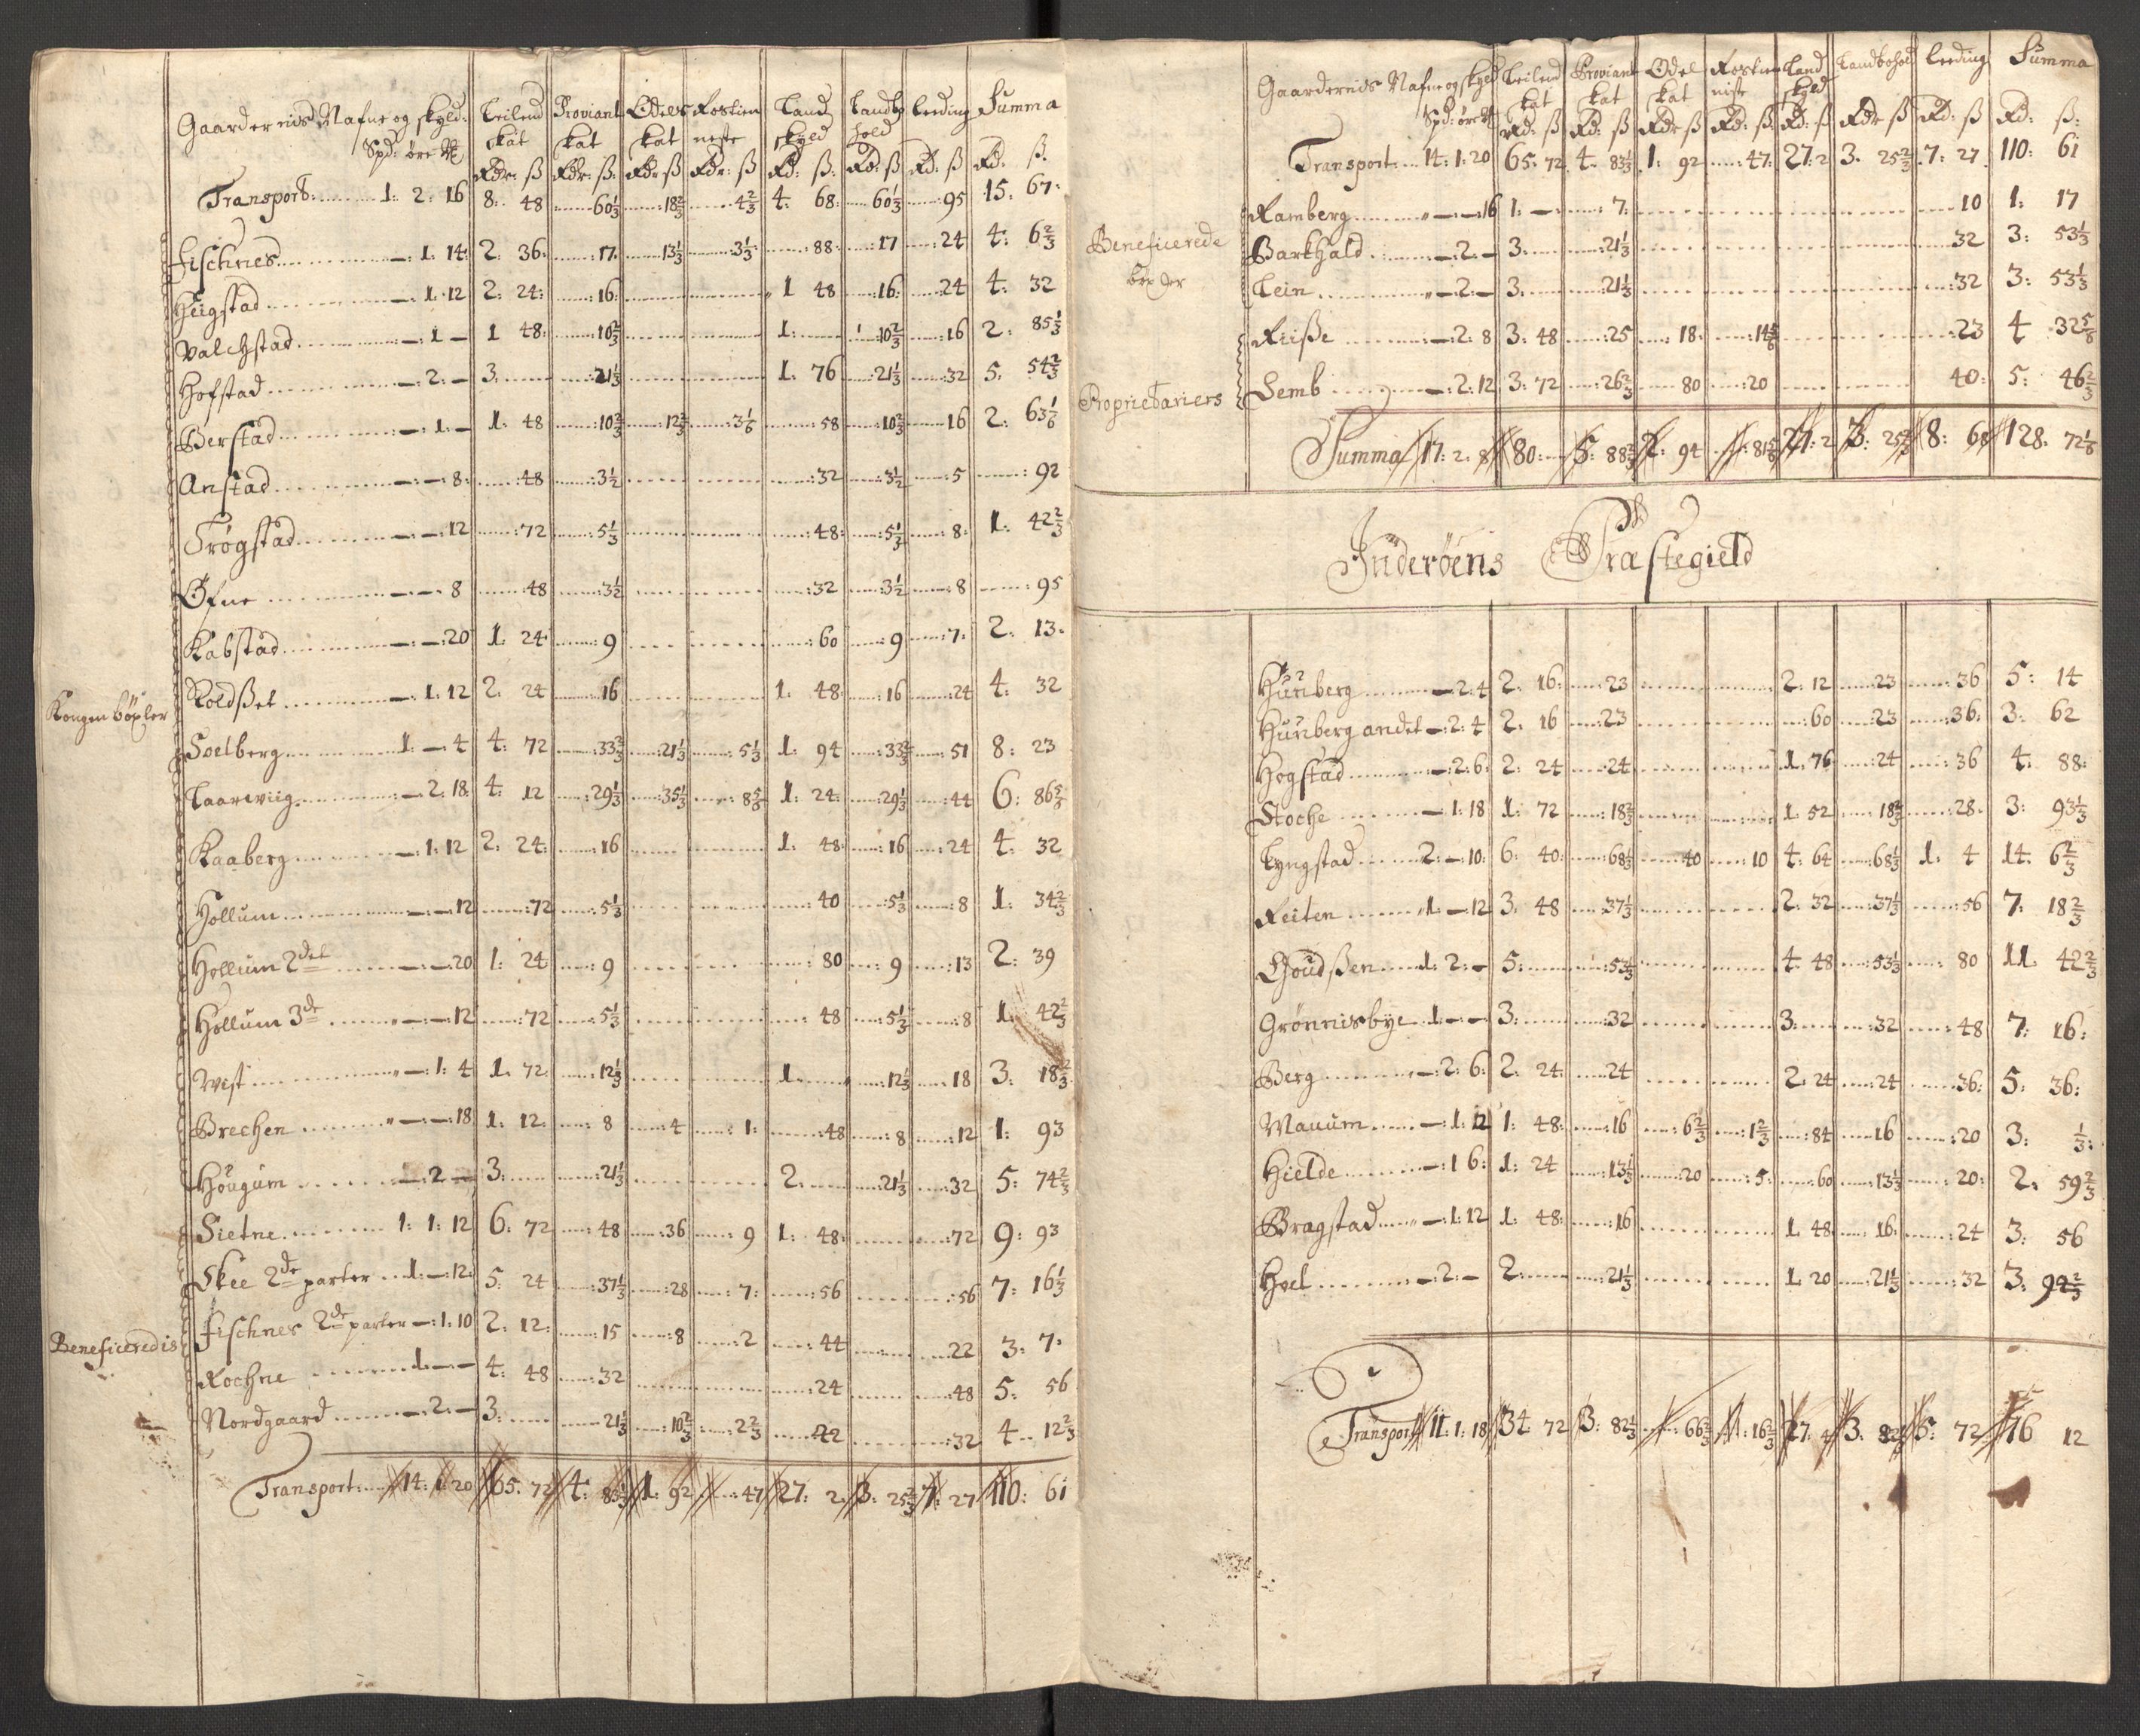 Gaardernis Nafne og skyld: Leilend skat Proviant skat Odels skat Rostienneste Land skyld Landbohold leeding Summa
Spd: øre Rdr: ß Rdr: ß: Rdr ß Rdr: ß Rd: ß: Rd: ß Rd: ß Rd: ß.
Transport: 1: 2: 16 8: 48 60 1/3 18 2/3 4 2/3 4: 68: 60 1/3 95 15: 67:
Fischnes —: 1: 14: 2: 36: 17: 13 1/3 3 1/3 88: 17 24 4: 6 2/3
Heigstad —: 1: 12 2: 24: 16: 1 48 16: 24 4: 32
Valchstad —: 1 — 1 48: 10 2/3 1: 10 2/3 16 2: 85 1/3
Hofstad —: 2: — 3: 21 1/3 1: 76 21 1/3 32 5: 54 2/3
Berstad —: 1: — 1: 48 10 2/3 12 2/3 3 1/6 58 10 2/3 16 2: 63 1/6
Anstad —: —: 8: 48 3 1/2 32 3 1/2 5 92
Trøgstad —: —: 12 72 5 1/3 48: 5 1/3 8: 1: 42 2/3
Øfne —: —: 8 48 3 1/2 32 3 1/2 8 95
Kabstad —: —: 20 1: 24 9 60 9 7: 2: 13:
Kongen bøxler
Roldßet —: 1: 12 2: 24 16 1: 48: 16 24 4: 32
Soelberg 1: —: 4 4: 72 33 2/3 21 1/3 5 1/3 1: 94 33 2/3 51 8: 23
Laarwiig —: 2: 18: 4: 12 29 1/3 35 1/3 8 5/6 1: 24: 29 1/3 44 6: 86 5/6
Kaaberg —: 1: 12 2: 24: 16 1: 48: 16 24 4: 32
Hollum —: —: 12 72 5 1/3 40 5 1/3 8 1: 34 2/3
Hollum 2det —: —: 20 1: 24 9 80 9 13 2: 39
Hollum 3de —: —: 12 72 5 1/3 48 5 1/3 8 1: 42 2/3
West —: 1: 4 1: 72: 12 1/3 1: 12 1/3 18 3: 18 2/3
Brechen —: —: 18 1: 12: 8 4 1: 48 8 12 1: 93
Hougum —: 2 — 3: 21 1/3 2: 21 1/3 32 5: 74 2/3
Sietne 1: 1: 12 6: 72 48 36 9 1: 48: 72 9: 93
Skee 2de parter 1: —: 12: 5: 24 37 1/3 28 7: 56 56 7: 16 1/3
Beneficeredis
Fischnes 2de parter —: 1: 10 2: 12: 15 8 2 44 22 3: 7:
Rochne 1: —: — 4: 48 32 24 48 5: 56
Nordgaard —: 2: — 3: 21 1/3 10 2/3 2 2/3 42 32 4: 12 2/3
Transport: 14: 1: 20 65: 72 4: 83 1/3 1: 92 47 27: 2: 3: 25 2/3 7: 27 110: 61
Gaardernis Nafne og skyld Leilend skat Proviant skat Odel skat Rostieniste Land skyld Landbohold leeding Summa
Spd: øre Rd: ß Rd: ß Rdr ß Rd: ß: Rd: ß Rdr ß Rd: ß Rd: ß:
Transport 14: 1: 20 65: 72 4: 83 1/3 1: 92 47: 27: 2 3: 25 2/3 7: 27 110: 61
Ramberg —: —: 16 1: — 7: 10 1: 17
Beneficerede
bønder
Barkhald —: 2: — 3: 21 1/3 32 3: 53 1/3
Lein —: 2: — 3: 21 1/3 32 3: 53 1/3
Riiße —: 2: 8 3: 48 25 18: 14 5/6 23 4 32 5/6
Proprietariers
Semb —: 2: 12 3: 72 26 2/3 80 20 40: 5: 46 2/3
Summa 17: 2: 8 80: 5: 88 2/3 2: 94 81 5/6 27: 2 3: 25 2/3 8: 68 128: 72 1/6
Inderøens Præstegield
Hunberg —: 2: 4 2: 16: 23 2: 12 23 36 5: 14
Hunberg andet —: 2: 4 2: 16 23 60 23 36: 3: 62
Hogstad —: 2: 6: 2: 24 24 1: 76 24 36 4: 88:
Stoche —: 1: 18 1: 72 18 2/3 1: 52 18 2/3 28: 3: 93 1/3
Lyngstad 2: —: 10: 6: 40: 68 1/3 40 10 4: 64 68 1/3 1: 4 14: 6 2/3
Reiten 1: —: 12 3: 48 37 1/3 2: 32 37 1/3 56 7: 18 2/3
Goudßen 1: 2: — 5: 53 1/3 4: 48 53 1/3 80 11: 42 2/3
Grønnisbye 1: —: — 3: 32 3: 32 48 7: 16:
Berg —: 2: 6: 2: 24: 24 2: 24 24 36: 5: 36:
Wanum —: 1: 12 1: 48: 16 6 2/3 1 2/3 84 16 20 3: 1/3:
Hielde —: 1: 6: 1: 24 13 1/3 20 5: 60 13 1/3 20: 2: 59 2/3
Bragstad —: 1: 12 1: 48: 16 1: 48 16: 24 3: 56
Hoel —: 2: — 2: 21 1/3 1: 20 21 1/3 32 3: 94 2/3
Transport 11: 1: 18 34 72 3: 82 1/3 66 2/3 16 2/3 27: 4 3: 82 1/3 5: 72 76 12